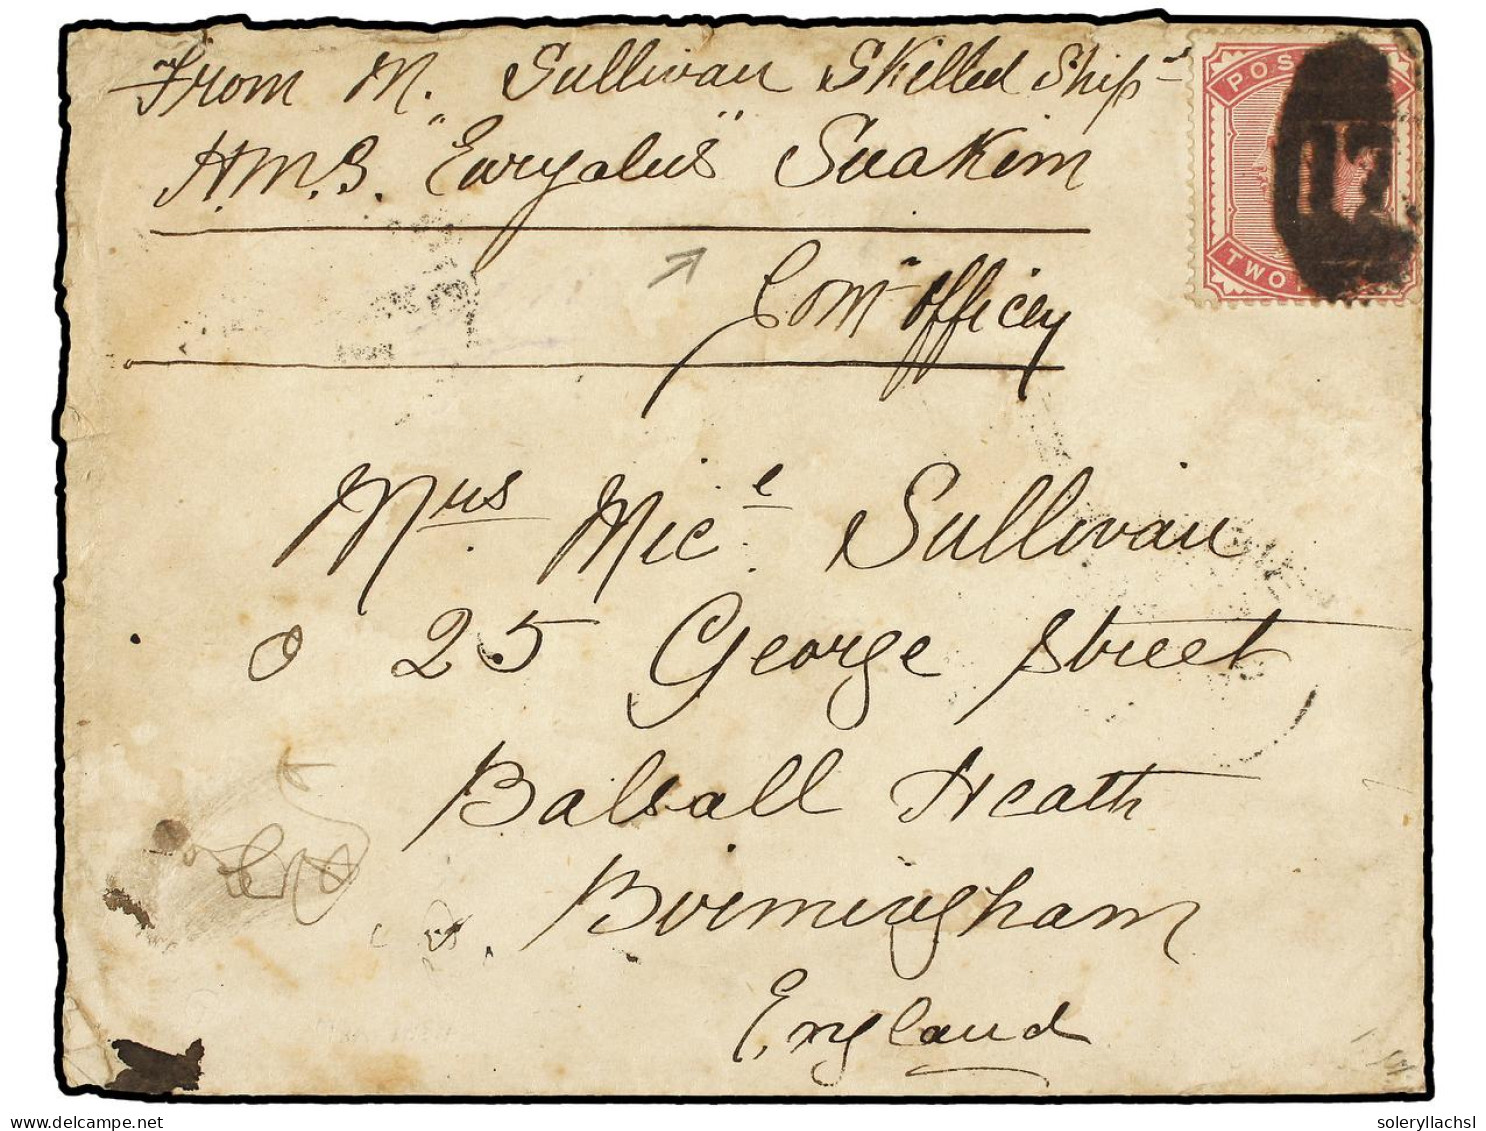 From M. Sullivan Skilled Ship
H.M.S. "Euryalus" Suakim
Com Officer
Mrs. Mic.e Sullivan
25 George Street
Balsall Heath
Birmingham
England
POS
TWO
17
soleryllachsl